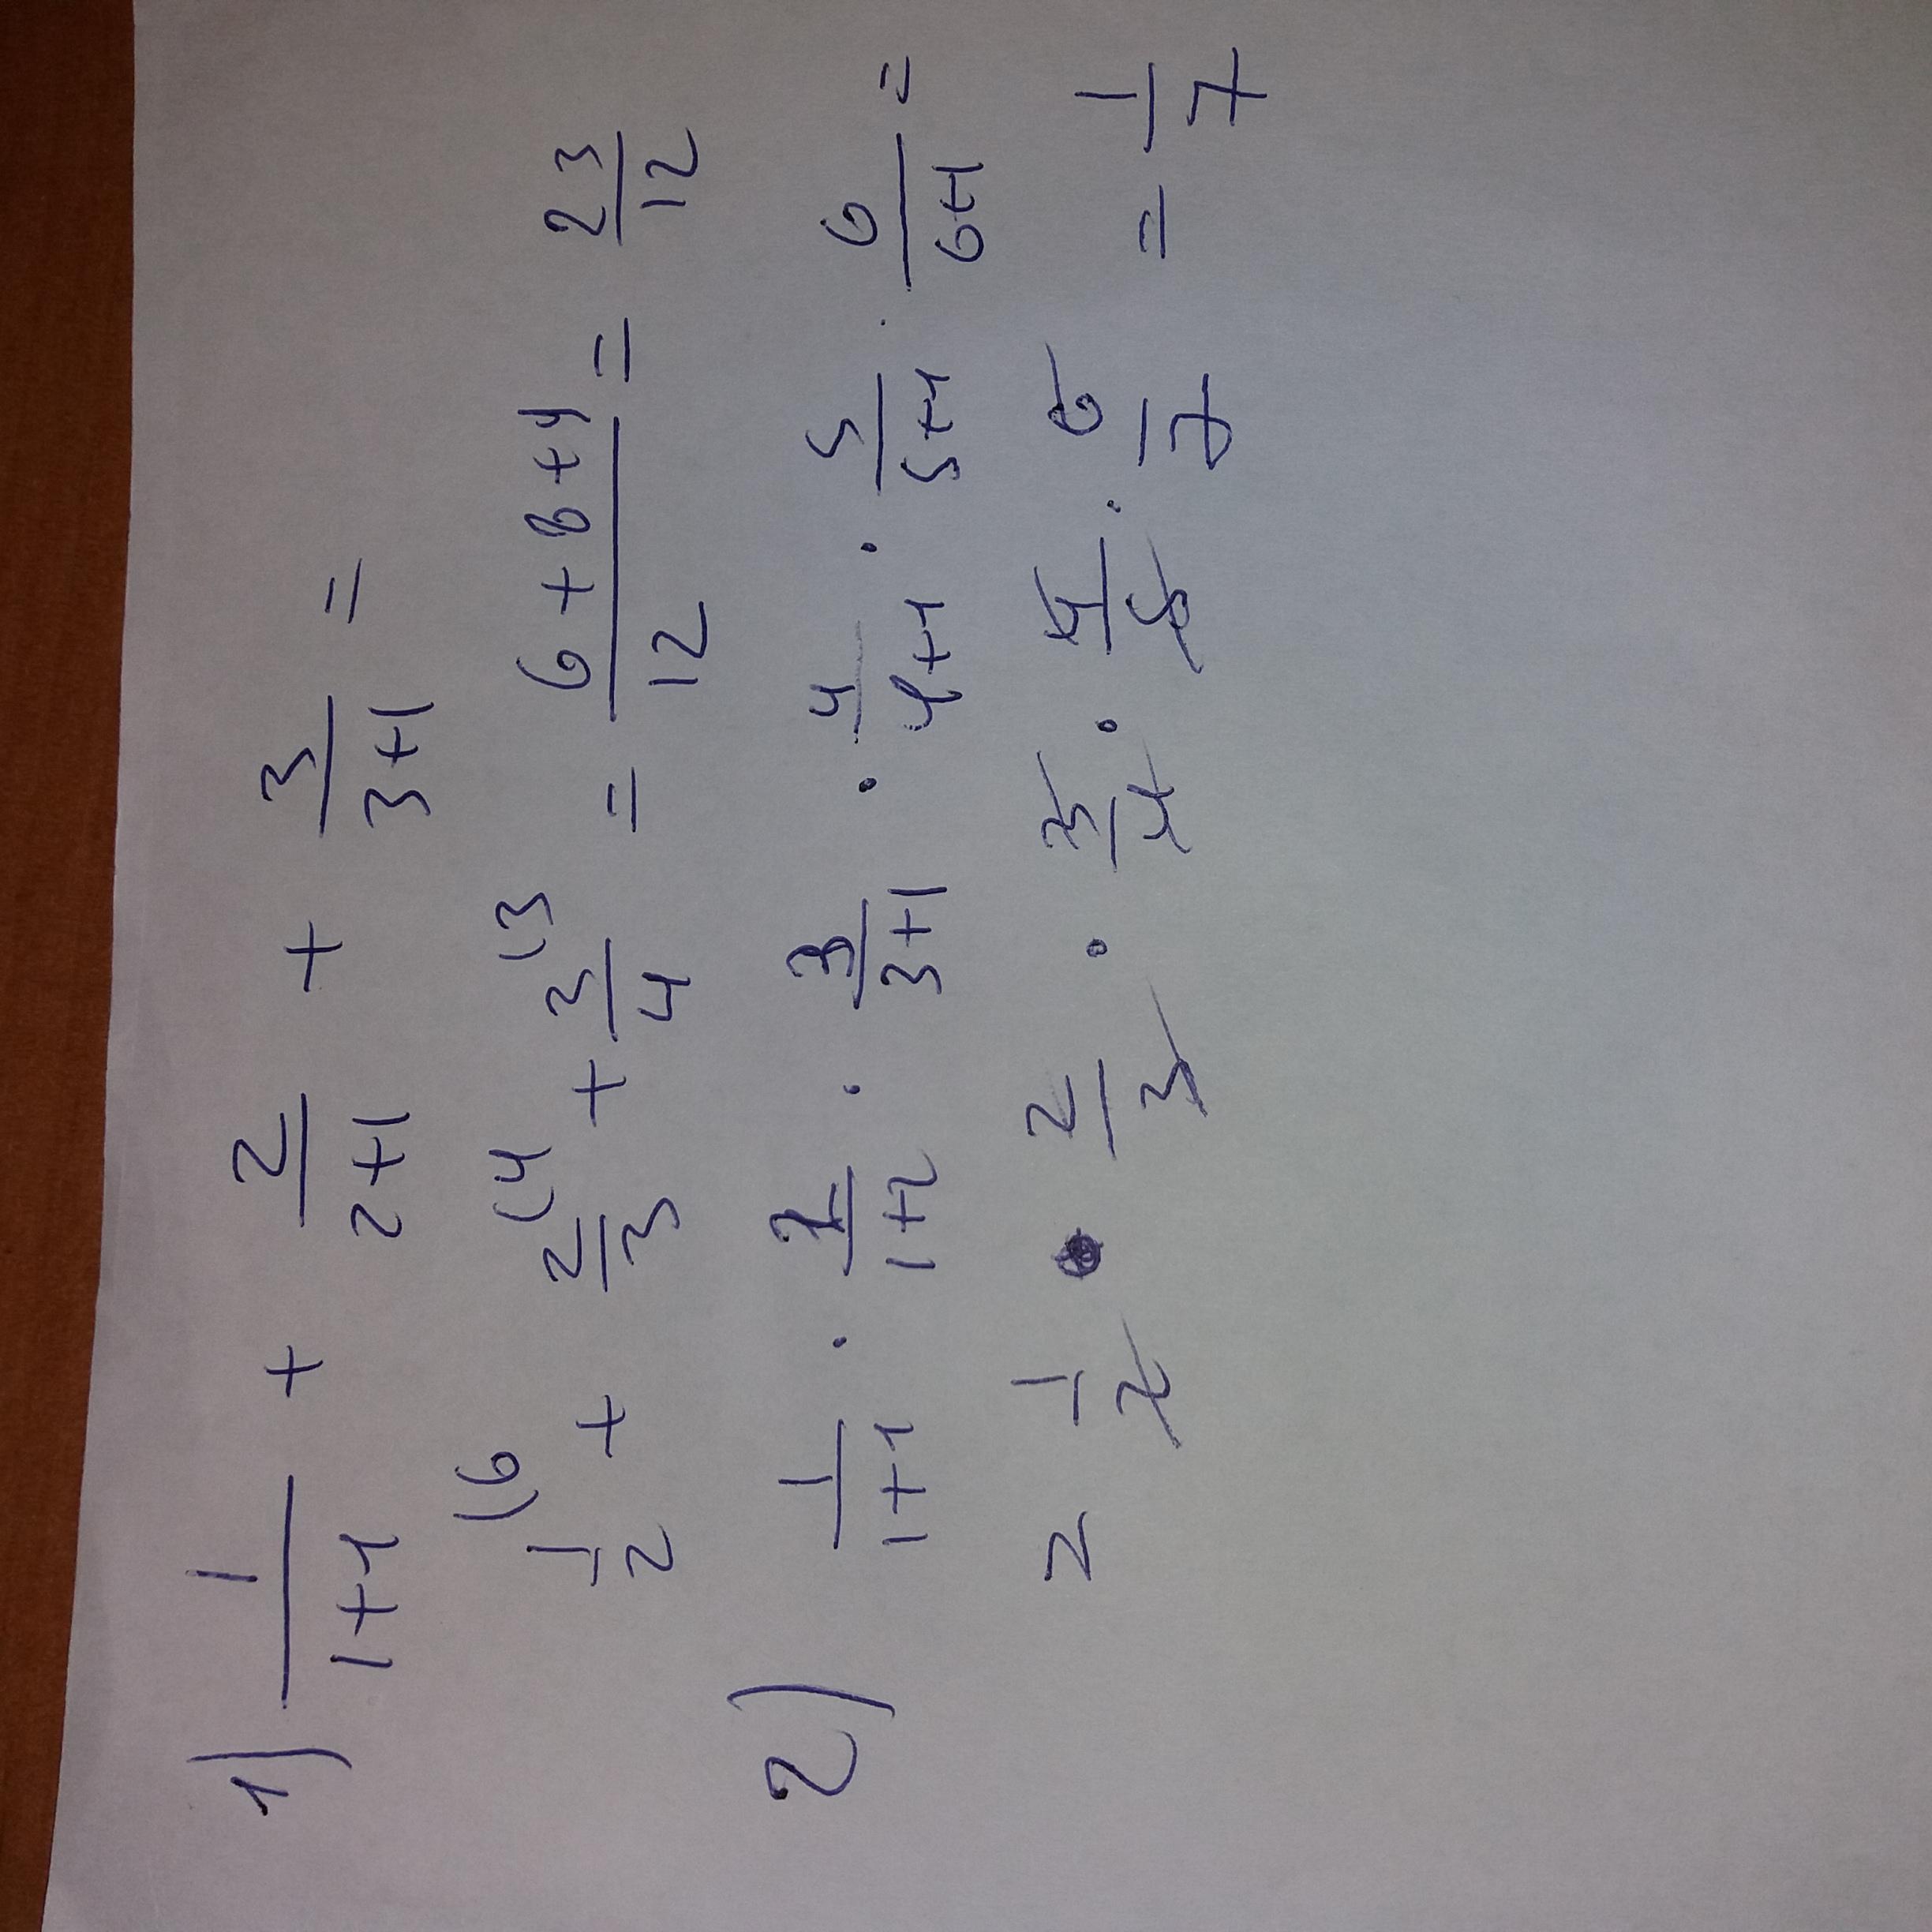 1) 1/(1+1) + 2/(2+1) + 3/(3+1) =
1/2 (6 + 2/3 (4 + 3/4 (3 = (6+8+9)/12 = 23/12
2) 1/(1+1) · 2/(1+2) · 3/(3+1) · 4/(4+1) · 5/(5+1) · 6/(6+1) =
= 1/2 · 2/3 · 3/4 · 4/5 · 6/7 = 1/7